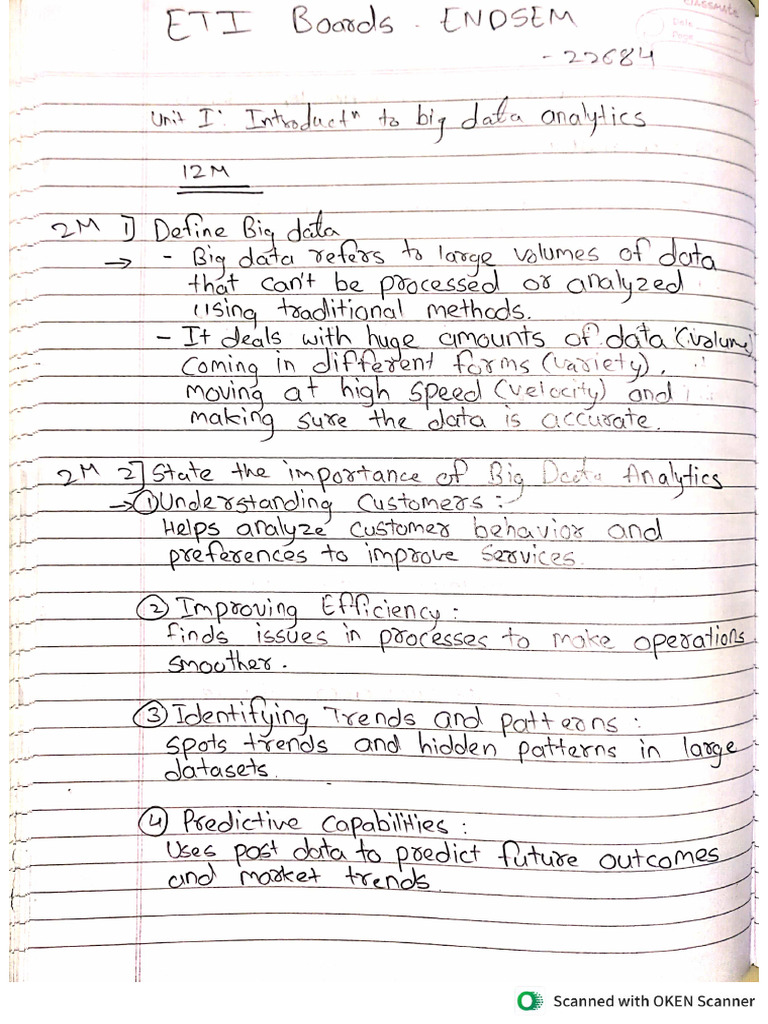 classmate
Date
Page
ETI Boards. ENDSEM
- 22684
Unit I: Introductⁿ to big data analytics
12M
2M 1] Define Big data
→ - Big data refers to large volumes of data
that can't be processed or analyzed
using traditional methods.
- It deals with huge amounts of data (volume)
coming in different forms (variety),
moving at high speed (velocity) and
making sure the data is accurate.
2M 2] State the importance of Big Data Analytics
→ ① Understanding Customers :
Helps analyze customer behavior and
preferences to improve services.
② Improving Efficiency :
finds issues in processes to make operations
smoother.
③ Identifying Trends and patterns :
spots trends and hidden patterns in large
datasets.
④ Predictive Capabilities :
Uses post data to predict future outcomes
and market trends.
Scanned with OKEN Scanner